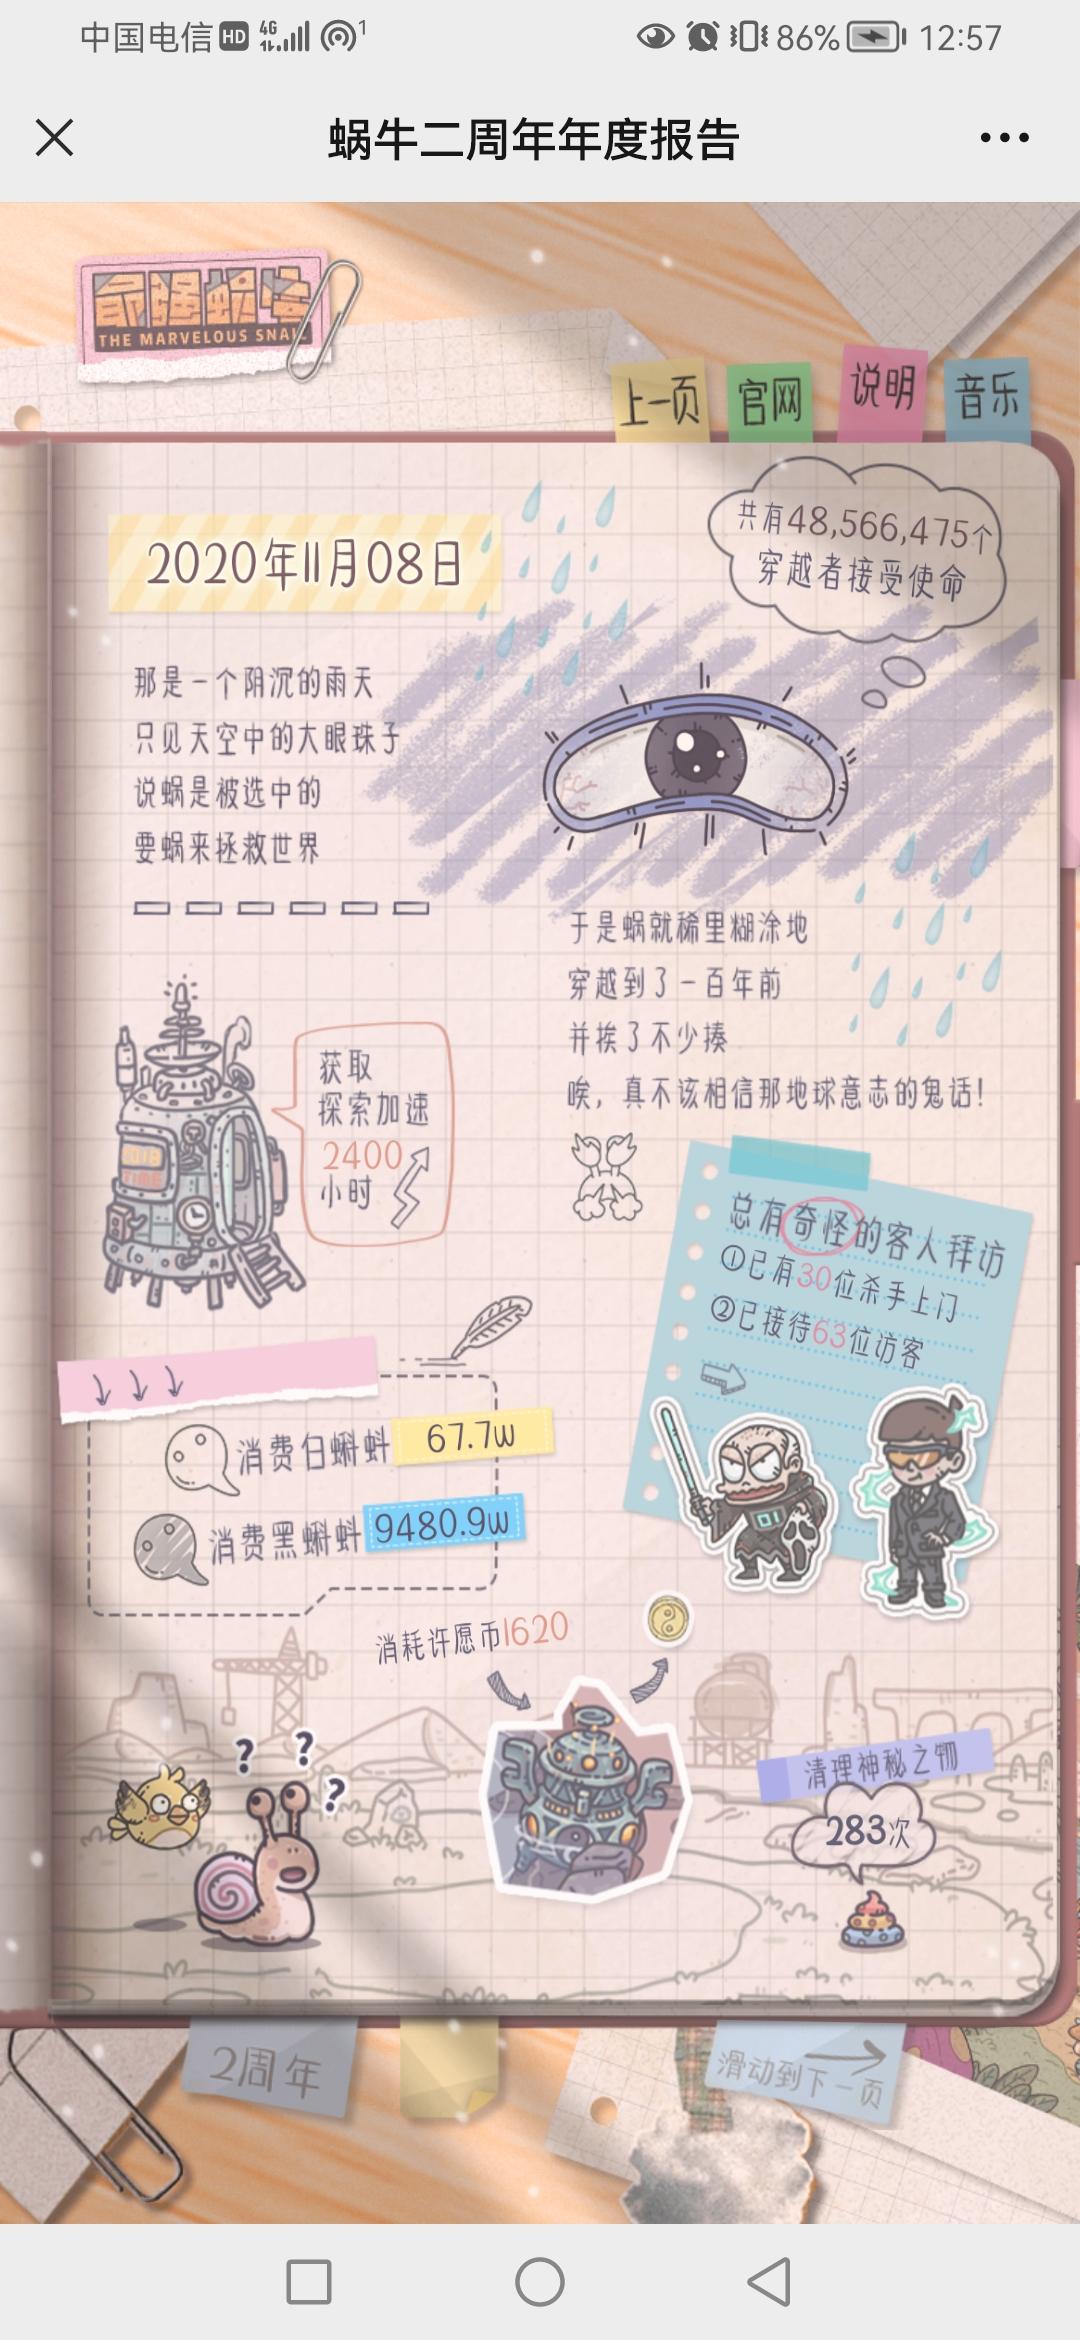 中国电信 HD 4G 1 86% 12:57
蜗牛二周年年度报告
最强蜗牛
THE MARVELOUS SNAIL
上一页 官网 说明 音乐
2020年11月08日
共有48,566,475个
穿越者接受使命
那是一个阴沉的雨天
只见天空中的大眼珠子
说蜗是被选中的
要蜗来拯救世界
于是蜗就稀里糊涂地
穿越到了一百年前
并挨了不少揍
唉，真不该相信那地球意志的鬼话！
2018
TIME
获取
探索加速
2400
小时
总有奇怪的客人拜访
①已有30位杀手上门
②已接待63位访客
消费白蝌蚪 67.7w
消费黑蝌蚪 9480.9w
消耗许愿币1620
? ? ?
清理神秘之物
283次
2周年
滑动到下一页